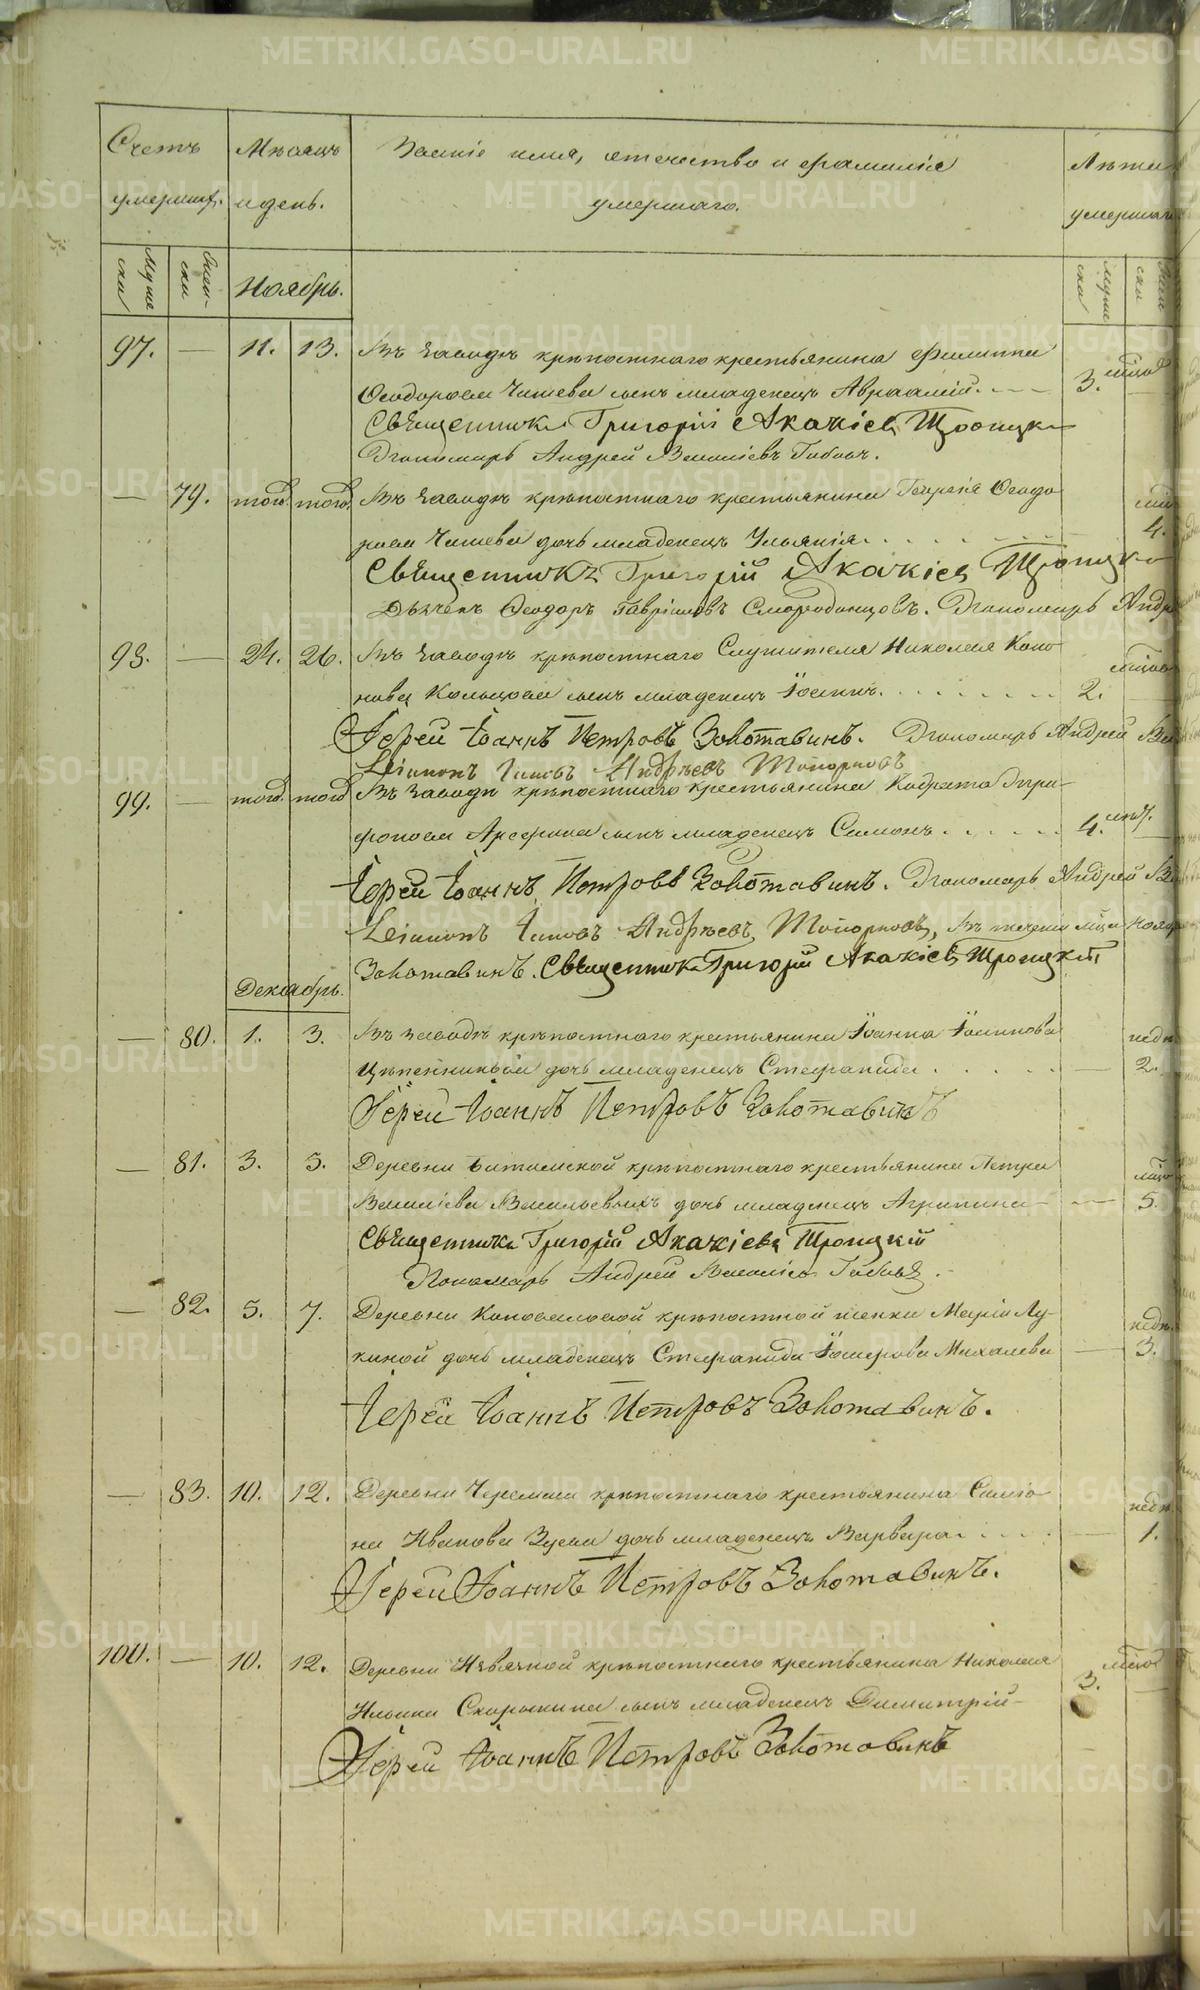 METRIKI.GASO-URAL.RU
Счетъ умершихъ.
Мѣсяцъ и день.
Званіе имя, отчество и фамилія
умершаго.
Лѣта умершаго
Муже ска
Жен- ска
Ноябрь.
муже ска
97. — 11. 13. Въ заводѣ крѣпостнаго крестьянина Филиппа
Ѳеодорова Чащева сынъ младенецъ Авраамій. 3. мѣсяц
Священникъ Григорій Акакіевъ Троицкій
Дьяпономарь Андрей Василіевъ
— 79. того того Въ заводѣ крѣпостнаго крестьянина Георгія Ѳеодо
рова Чащева дочь младенецъ Ульянія. 4.
Священникъ Григорій Акакіевъ Троицкій
Дьячекъ Ѳеодоръ Гавріиловъ Смородинцовъ. Пономарь Андр
98. — 24. 26. Въ заводѣ крѣпостнаго Служителя Николая Коно
нова Кольцова сынъ младенецъ 2.
Іерей Іоаннъ Петровъ Золотавинъ. Пономарь Андрей Ва
Діаконъ Іаковъ Андреевъ Топорковъ
99. — того того Въ заводѣ крѣпостнаго крестьянина
сынъ младенецъ Симонъ. 4.
Іерей Іоаннъ Петровъ Золотавинъ. Пономарь Андрей Ва
Діаконъ Іаковъ Андреевъ Топорковъ, Въ теченіи мѣсяца Нояб
Золотавинъ. Священникъ Григорій Акакіевъ Троицкій
Декабрь.
— 80. 1. 3. Въ заводѣ крѣпостнаго крестьянина Іоанна
дочь младенецъ Стефанида 2.
Іерей Іоаннъ Петровъ Золотавинъ
— 81. 3. 5. Деревни Битимской крѣпостнаго крестьянина Петра
Василіева Васильевыхъ дочь младенецъ Агрипина — 5.
Священникъ Григорій Акакіевъ Троицкій
Пономарь Андрей Василіевъ
— 82. 5. 7. Деревни Коноваловой крѣпостной женки Маріи Лу-
киной дочь младенецъ Стефанида Михалева — 3.
Іерей Іоаннъ Петровъ Золотавинъ.
— 83. 10. 12. Деревни Черемши крѣпостнаго крестьянина Симео
на Иванова Зуева дочь младенецъ Варвара. — 1.
Іерей Іоаннъ Петровъ Золотавинъ.
100. — 10. 12. Деревни Извѣзной крѣпостнаго крестьянина Николая
Ильина Скорынина сынъ младенецъ Димитрій 3.
Іерей Іоаннъ Петровъ Золотавинъ